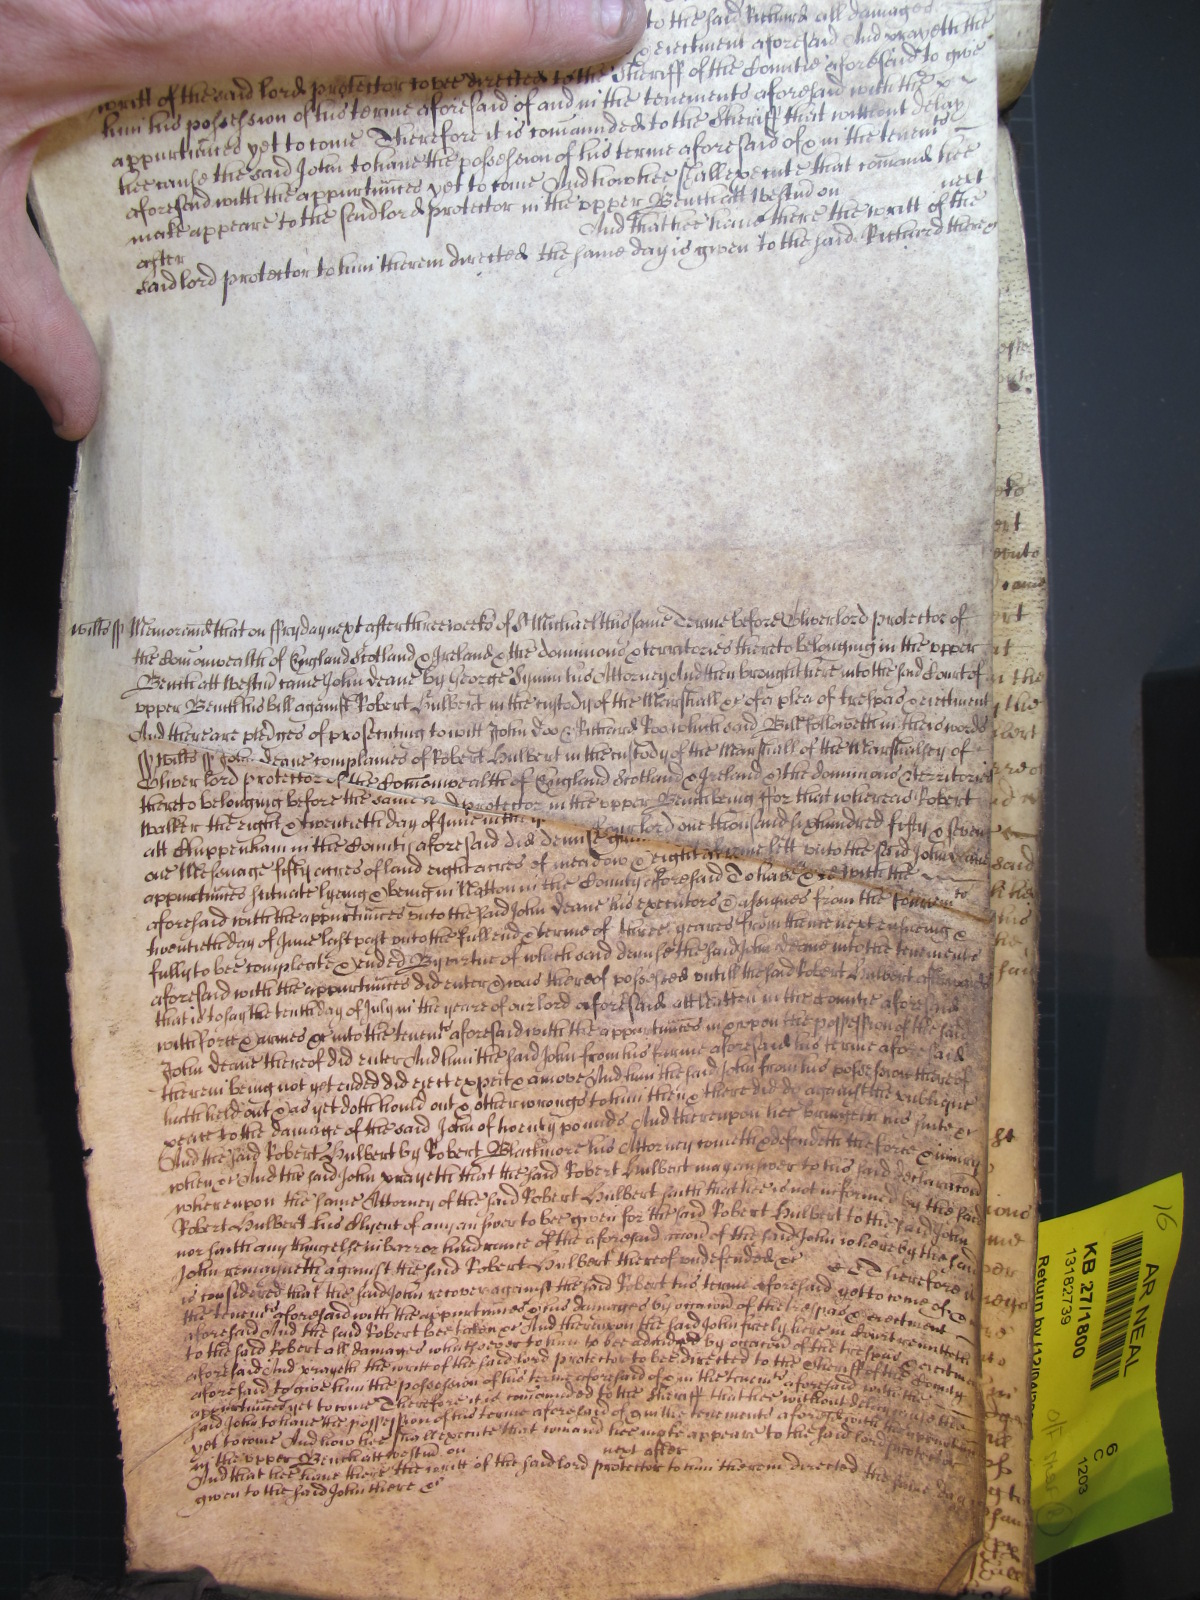 to the said Richard all damages
eiectment aforesaid And prayeth the
writt of the said lord protector to bee directed to the Sheriff of the Countie aforesaid to give
him his possession of his terme aforesaid of and in the tenements aforesaid with the
appurtinces yet to come Therefore it is comaunded to the Sheriff that without delay
hee cause the said John to haue the possession of his terme aforesaid of & in the tenemts
aforesaid with the appurtinces yet to come And how hee shall execute that comand hee
make appeare to the said lord protector in the vpper Bench att Westm on next
after And that hee haue there the writt of the
said lord protector to him therein directed the same day is given to the said Richard there &c
Wilts ss Memorand that on ffryday next after three weeks of St Michael this same Terme before Oliver lord protector of
the Comonwealth of England Scotland & Ireland & the dominions & territories thereto belonging in the vpper
Bench att Westm came John deane by George Symm his Attorney And then brought here into the said Court of
vpper Bench his bill against Robert Hulbert in the custody of the Marshall &c of a plea of trespas & eiectment
And there are pledges of prosecuting to witt John doo & Richard Roo which said Bill followeth in theis words
ss Wilts ss John deane complaines of Robert Hulbert in the custody of the Marshall of the Marshalsey of
Oliver lord protector of the Comonwealth of England Scotland & Ireland & the dominions & territories
thereto belonging before the same protector in the vpper Bench being ffor that whereas Robert
Walker the eight & twentieth day of June in the lord one thousand six hundred fifty & seven
att Chippenham in the County aforesaid did demise left vnto the said John deane
one Messuage fifty acres of land eight acres of meadow & eight with the
appurtinces situate lyeing & being in Natton in the County aforesaid To haue &
aforesaid with the appurtinces vnto the said John deane his executors & assignes from the
twentieth day of June last past vnto the full end & terme of three yeares from thence next ensueing &
fully to bee compleate & ended By vertue of which said demise the said John deane into the tenements
aforesaid with the appurtinces did enter & was thereof possessed vntill the said Robert Hulbert afterwards
that is to say the tenth day of July in the yeare of our lord aforesaid att Natten in the Countie aforesaid
with force & armes &c into the tenemts aforesaid with the appurtinces in & vpon the possession of the said
John deane thereof did enter And him the said John from his farme aforesaid his terme aforesaid
therein being not yet ended did eiect expell & amove And him the said John from his possession thereof
hath held out & as yet doth hould out & other wrongs to him then & there did do against the publique
peace to the damage of the said John of twenty pounds And therevpon hee bringeth his suite &c
And the said Robert Hulbert by Robert Blackmore his Attorney cometh & defendeth the force & iniury
when &c And the said John prayeth that the said Robert Hulbert may answer to his said declaracon
wherevpon the same Attorney of the said Robert Hulbert saith that hee is not informed by the said
Robert Hulbert his Clyent of any answer to bee given for the said Robert Hulbert to the said John
nor saith any thing else in barr or hindrance of the aforesaid accon of the said John whereby the said
John remayneth against the said Robert Hulbert thereof vndefended &c Therefore it
is considered that the said John recover against the said Robert his terme aforesaid yet to come of & in
the tenemts aforesaid with the appurtinces & his damages by occacon of the trespas & eiectment
aforesaid And the said Robert bee taken &c And therevpon the said John freely here in Court remitteth
to the said Robert all damages whatsoever to him to be adiudged by occacon of the trespas & eiectmt
aforesaid And prayeth the writt of the said lord protector to bee directed to the Sheriff of the County
aforesaid to give him the possession of his terme aforesaid of & in the tenemts aforesaid with the
appurtinces yet to come Therefore it is comaunded to the Sheriff that hee without delay cause the
said John to haue the possession of his terme aforesaid of & in the tenements aforesaid with the appurtinces
yet to come And how hee shall execute that comand hee make appeare to the said lord protector
in the vpper Bench att Westm on next after
And that hee haue there the writt of the said lord protector to him therein directed the same day is
given to the said John there &c
AR NEAL
KB 27/1800
13182739
6
C
1203
16